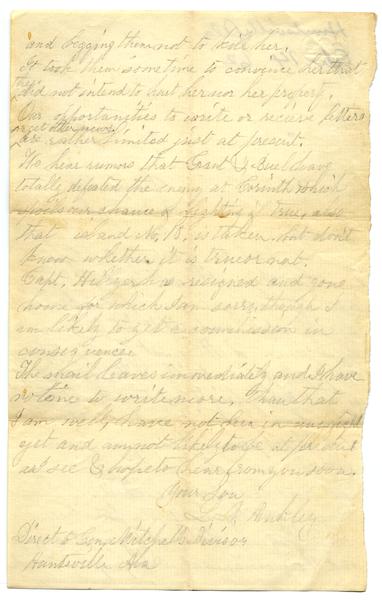 and begging them not to kill her.
It took them sometime to convince her that
they
did not intend to hurt her nor her property.
Our opportunities to write or receive letters
or get other news
are rather limited just at present.
We hear rumors that Grant & Buel have
totally defeated the enemy at Corinth which
spoils our chance of fighting if true, also
that island No. 10. is taken, but don't
know whether it is true or not.
Capt. has resigned and gone
home for which I am sorry, though I
am likely to get a commission in
consequence.
The mail leaves immediately and I have
no time to write more, than that
I am well, have not been in
yet and am not likely to be at present
as I see & hope to hear from you soon.
Your Son
L.
Direct to Gen. Mitchell's Division
Huntsville Ala